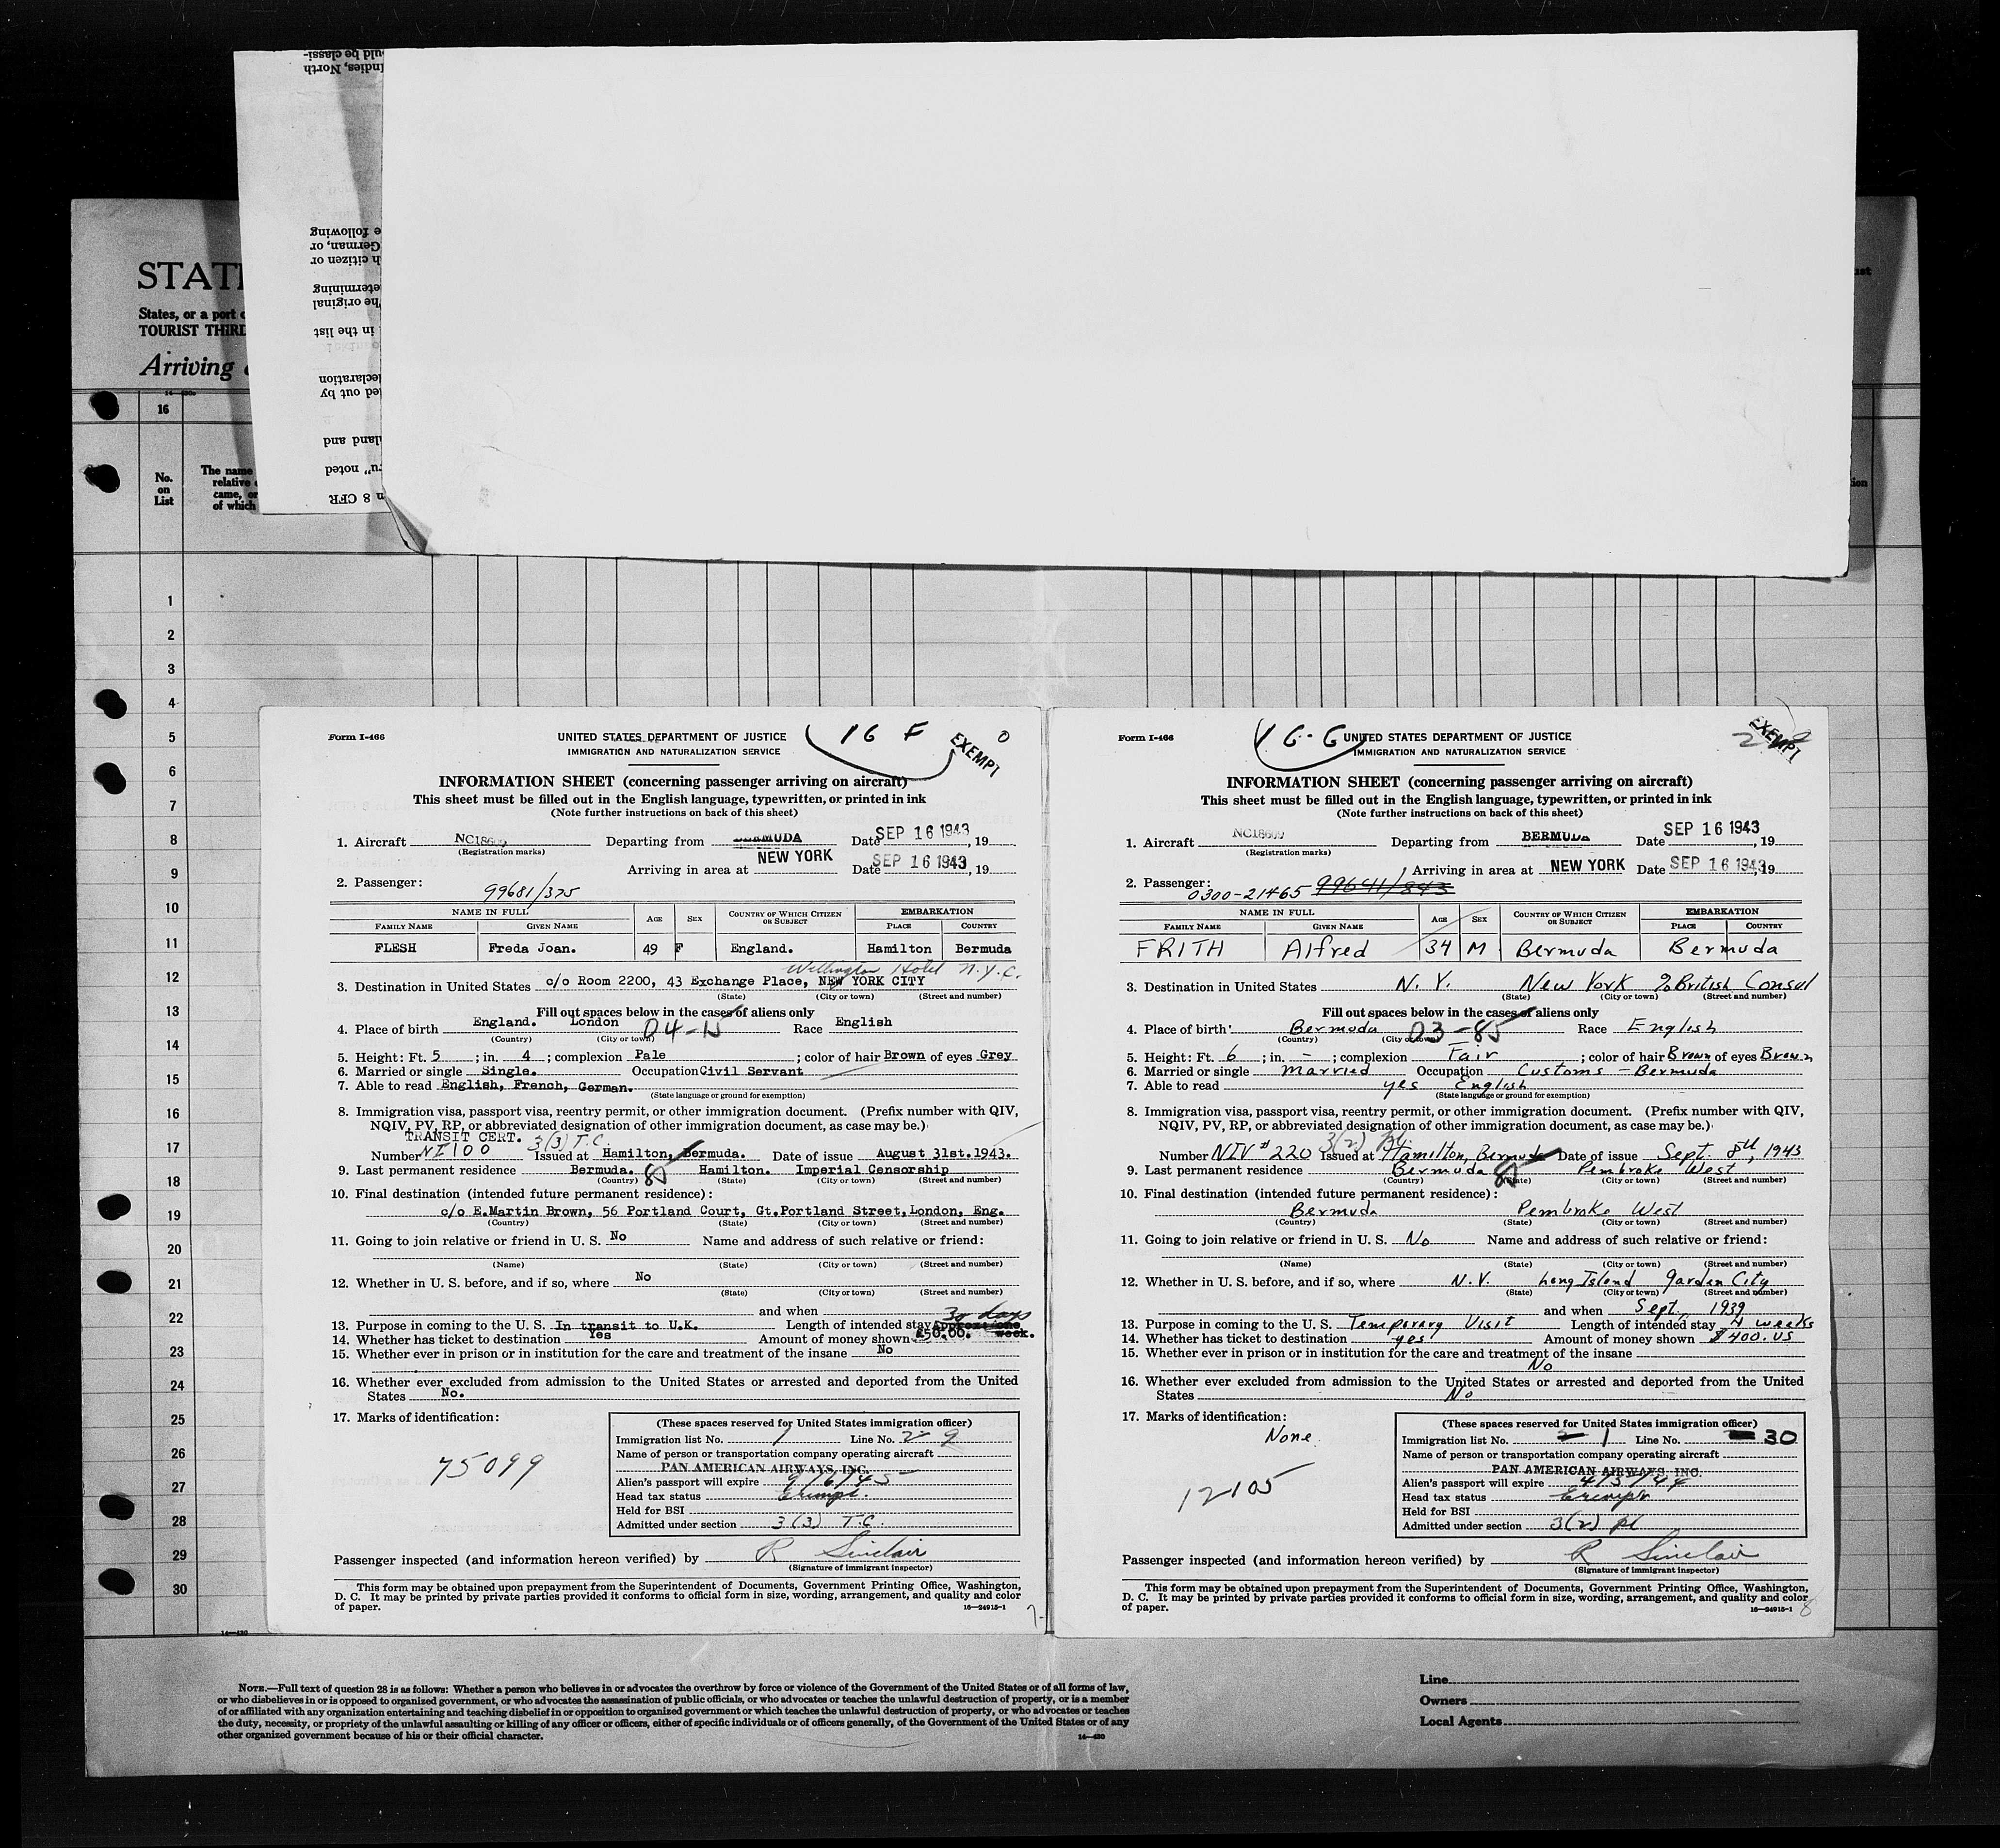 STAT
States, or a port
TOURIST THIRD
Arriving
uld be classi-
Indies, North
e following
German, or
h citizen or
etermining
he original
in the list
eclaration
ed out by
land and
u" noted
n 8 CFR
16
No.
on
List
The name
relative
came, or
of which
1
2
3
4
5
6
7
8
9
10
11
12
13
14
15
16
17
18
19
20
21
22
23
24
25
26
27
28
29
30
Form I-466
UNITED STATES DEPARTMENT OF JUSTICE
16 F
EXEMPT
0
IMMIGRATION AND NATURALIZATION SERVICE
INFORMATION SHEET (concerning passenger arriving on aircraft)
This sheet must be filled out in the English language, typewritten, or printed in ink
(Note further instructions on back of this sheet)
1. Aircraft NC18609 Departing from BERMUDA Date SEP 16 1943, 19
(Registration marks)
Arriving in area at NEW YORK Date SEP 16 1943, 19
2. Passenger:
99681/375
NAME IN FULL AGE SEX COUNTRY OF WHICH CITIZEN OR SUBJECT EMBARKATION
FAMILY NAME GIVEN NAME PLACE COUNTRY
FLESH Freda Joan. 49 F England. Hamilton Bermuda
Wellington Hotel N.Y.C.
3. Destination in United States c/o Room 2200, 43 Exchange Place, NEW YORK CITY
(State) (City or town) (Street and number)
Fill out spaces below in the cases of aliens only
4. Place of birth England. London 04-15 Race English
(Country) (City or town)
5. Height: Ft. 5; in. 4; complexion Pale; color of hair Brown of eyes Grey
6. Married or single Single. Occupation Civil Servant
7. Able to read English, French, German.
(State language or ground for exemption)
8. Immigration visa, passport visa, reentry permit, or other immigration document. (Prefix number with QIV,
NQIV, PV, RP, or abbreviated designation of other immigration document, as case may be.)
TRANSIT CERT. 3(3) T.C.
Number NI 100 Issued at Hamilton, Bermuda. Date of issue August 31st.1943.
9. Last permanent residence Bermuda. 85 Hamilton. Imperial Censorship
(Country) (State) (City or town) (Street and number)
10. Final destination (intended future permanent residence):
c/o E.Martin Brown, 56 Portland Court, Gt.Portland Street, London, Eng.
(Country) (State) (City or town) (Street and number)
11. Going to join relative or friend in U. S. No Name and address of such relative or friend:
(Name) (State) (City or town) (Street and number)
12. Whether in U. S. before, and if so, where No
(State) (City or town) (Street and number)
and when
30 days
13. Purpose in coming to the U. S. In transit to U.K. Length of intended stay Approx: one week.
14. Whether has ticket to destination Yes Amount of money shown £50.00.
15. Whether ever in prison or in institution for the care and treatment of the insane No
16. Whether ever excluded from admission to the United States or arrested and deported from the United
States No.
17. Marks of identification:
75099
(These spaces reserved for United States immigration officer)
Immigration list No. 1 Line No. 2 9
Name of person or transportation company operating aircraft
PAN AMERICAN AIRWAYS, INC.
Alien's passport will expire 9/6/45
Head tax status Exempt.
Held for BSI
Admitted under section 3(3) T.C.
Passenger inspected (and information hereon verified) by R Sinclair
(Signature of immigrant inspector)
This form may be obtained upon prepayment from the Superintendent of Documents, Government Printing Office, Washington,
D. C. It may be printed by private parties provided it conforms to official form in size, wording, arrangement, and quality and color
of paper.
16—24915-1
7
Form I-466
16-G
UNITED STATES DEPARTMENT OF JUSTICE
EXEMPT
IMMIGRATION AND NATURALIZATION SERVICE
INFORMATION SHEET (concerning passenger arriving on aircraft)
This sheet must be filled out in the English language, typewritten, or printed in ink
(Note further instructions on back of this sheet)
1. Aircraft NC18609 Departing from BERMUDA Date SEP 16 1943, 19
(Registration marks)
Arriving in area at NEW YORK Date SEP 16 1943, 19
2. Passenger:
0300-21465 99641/843
NAME IN FULL AGE SEX COUNTRY OF WHICH CITIZEN OR SUBJECT EMBARKATION
FAMILY NAME GIVEN NAME PLACE COUNTRY
FRITH Alfred 34 M Bermuda Bermuda
3. Destination in United States N.Y. New York % British Consul
(State) (City or town) (Street and number)
Fill out spaces below in the cases of aliens only
4. Place of birth Bermuda 03-85 Race English
(Country) (City or town)
5. Height: Ft. 6; in. -; complexion Fair; color of hair Brown of eyes Brown
6. Married or single Married Occupation Customs - Bermuda
7. Able to read yes English
(State language or ground for exemption)
8. Immigration visa, passport visa, reentry permit, or other immigration document. (Prefix number with QIV,
NQIV, PV, RP, or abbreviated designation of other immigration document, as case may be.)
3(2) Pl.
Number NIV #220 Issued at Hamilton, Bermuda Date of issue Sept. 8th, 1943
9. Last permanent residence Bermuda 85 Pembroke West
(Country) (State) (City or town) (Street and number)
10. Final destination (intended future permanent residence):
Bermuda Pembroke West
(Country) (State) (City or town) (Street and number)
11. Going to join relative or friend in U. S. No Name and address of such relative or friend:
(Name) (State) (City or town) (Street and number)
12. Whether in U. S. before, and if so, where N.Y. Long Island Garden City
(State) (City or town) (Street and number)
and when Sept., 1939
13. Purpose in coming to the U. S. Temporary Visit Length of intended stay 4 weeks
14. Whether has ticket to destination yes Amount of money shown $400. US
15. Whether ever in prison or in institution for the care and treatment of the insane
No
16. Whether ever excluded from admission to the United States or arrested and deported from the United
States No
17. Marks of identification:
None
12105
(These spaces reserved for United States immigration officer)
Immigration list No. 2 1 Line No. 30
Name of person or transportation company operating aircraft
PAN AMERICAN AIRWAYS, INC.
Alien's passport will expire 4/3/44
Head tax status Exempt
Held for BSI
Admitted under section 3(2) pl
Passenger inspected (and information hereon verified) by R Sinclair
(Signature of immigrant inspector)
This form may be obtained upon prepayment from the Superintendent of Documents, Government Printing Office, Washington,
D. C. It may be printed by private parties provided it conforms to official form in size, wording, arrangement, and quality and color
of paper.
16—24915-1
8
NOTE.—Full text of question 28 is as follows: Whether a person who believes in or advocates the overthrow by force or violence of the Government of the United States or of all forms of law,
or who disbelieves in or is opposed to organized government, or who advocates the assassination of public officials, or who advocates or teaches the unlawful destruction of property, or is a member
of or affiliated with any organization entertaining and teaching disbelief in or opposition to organized government or which teaches the unlawful destruction of property, or who advocates or teaches
the duty, necessity, or propriety of the unlawful assaulting or killing of any officer or officers, either of specific individuals or of officers generally, of the Government of the United States or of any
other organized government because of his or their official character.
14—430
Line
Owners
Local Agents